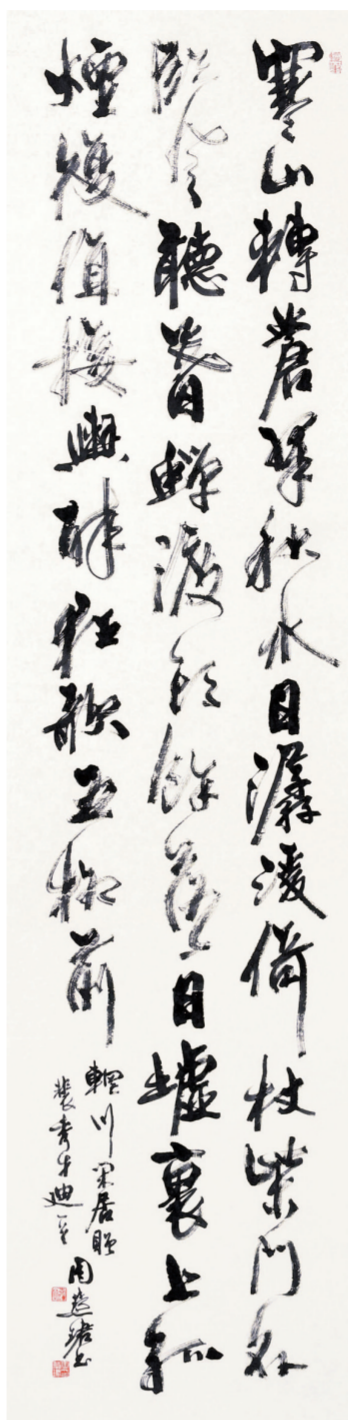 寒山轉蒼翠秋水日潺湲倚杖柴門外
臨風聽暮蟬渡頭餘落日墟裏上孤
煙復值接輿醉狂歌五柳前
輞川閑居贈
裴秀才迪一首
周慧珺書